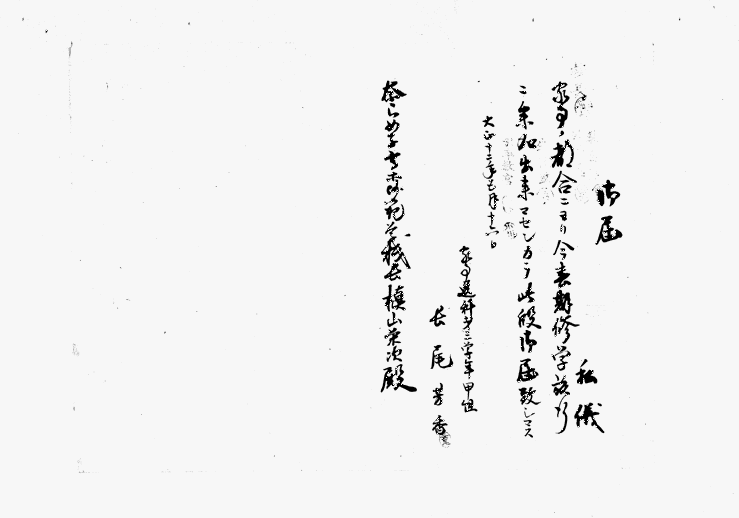 御届
私儀
家事ノ都合ニヨリ今春期修学旅行
ニ参加出来マセンカラ此段御届致シマス
大正十二年五月十六日
家事選科第三学年甲組
長尾芳香
奈良女子高等師範学校長槇山栄次殿